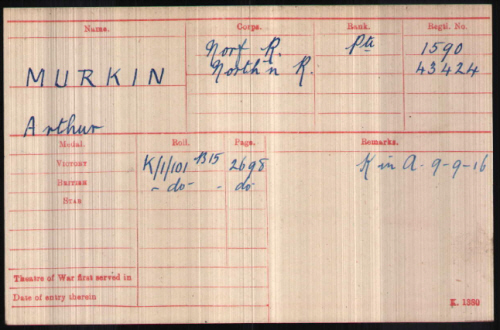 Name. Corps. Rank. Regtl. No.
Norf R. Pte 1590
MURKIN North'n R. 43424
Arthur
Medal. Roll. Page. Remarks.
VICTORY K/1/101 B15 2698 K in A. 9-9-16
BRITISH - do - - do
STAR
Theatre of War first served in
Date of entry therein K. 1380